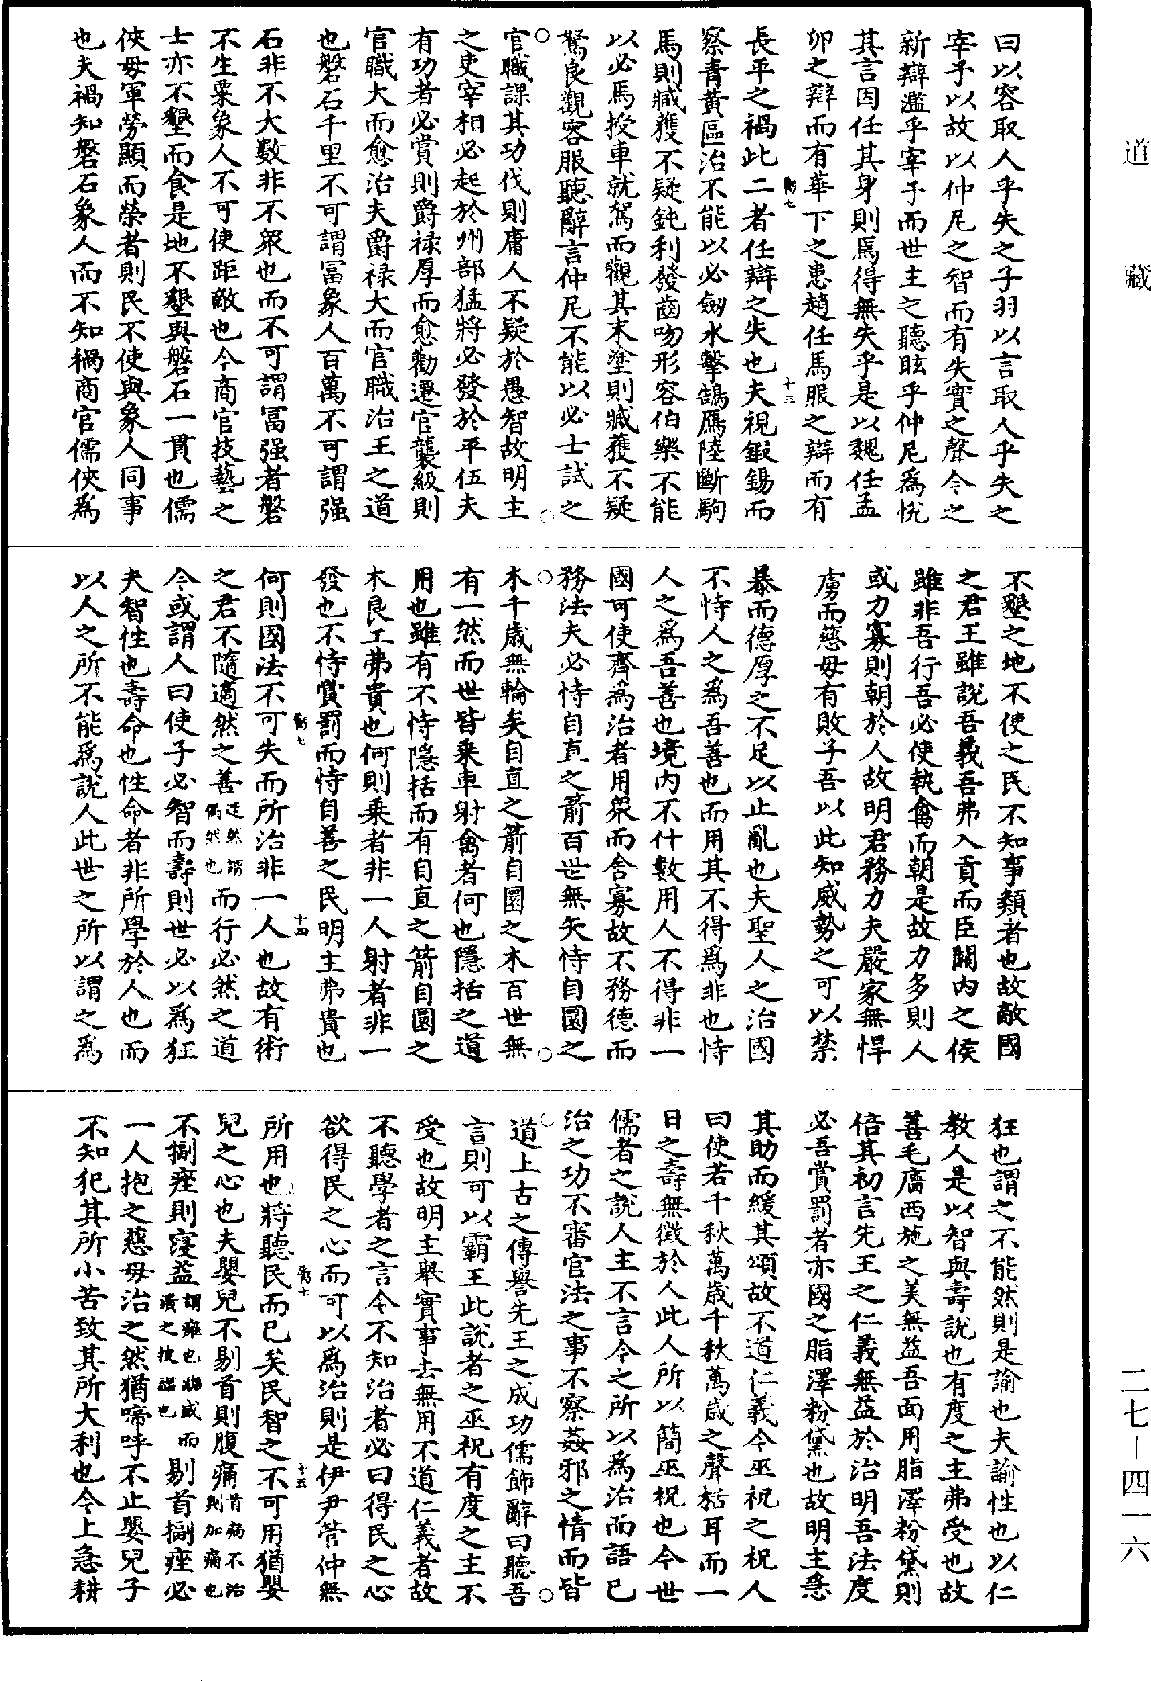 道藏
曰以容取人乎失之子羽以言取人乎失之
宰予以故以仲尼之智而有失實之聲今之
新辯濫乎宰予而世主之聽眩乎仲尼爲悅
其言因任其身則焉得無失乎是以魏任孟
卯之辯而有華下之患趙任馬服之辯而有
十三
長平之禍此二者任辯之失也夫視鍛錫而
察青黃區治不能以必劒水擊鵠鴈陸斷駒
馬則臧獲不疑鈍利發齒吻形容伯樂不能
以必馬授車就駕而觀其末塗則臧獲不疑
駑良觀容服聽辭言仲尼不能以必士試之
官職課其功伐則庸人不疑於愚智故明主
之吏宰相必起於州部猛將必發於平伍夫
有功者必賞則爵祿厚而愈勸遷官襲級則
官職大而愈治夫爵祿大而官職治王之道
也磐石千里不可謂冨象人百萬不可謂强
石非不大数非不衆也而不可謂冨强者磐
不生粟象人不可使距敵也今商官技藝之
士亦不墾而食是地不墾與磐石一貫也儒
俠毋軍勞顯而榮者則民不使與象人同事
也夫禍知磐石象人而不知禍商官儒俠爲
不墾之地不使之民不知事類者也故敵國
之君王雖說吾義吾弗入貢而臣關內之侯
雖非吾行吾必使執禽而朝是故力多則人
或力寡則朝於人故明君務力夫嚴家無悍
虜而慈母有敗子吾以此知威勢之可以禁
暴而德厚之不足以止亂也夫聖人之治國
不恃人之爲吾善也而用其不得爲非也恃
人之爲吾善也境內不什數用人不得非一
國可使齊爲治者用衆而舍寡故不務德而
務法夫必恃自直之箭百世無矢恃自圜之
木千歲無輪矣自直之箭自圜之木百世無
有一然而世皆乘車射禽者何也隱括之道
用也雖有不恃隱括而有自直之箭自圜之
木良工弗貴也何則乘者非一人射者非一
發也不恃賞罰而恃自善之民明主弗貴也
十四
何則國法不可失而所治非一人也故有術
之君不隨適然之善適然謂偶然也而行必然之道
今或謂人曰使子必智而壽則世必以爲狂
夫智性也壽命也性命者非所學於人也而
以人之所不能爲說人此世之所以謂之爲
狂也謂之不能然則是諭也夫諭性也以仁
教人是以智與壽說也有度之主弗受也故
善毛廧西施之美無益吾面用脂澤粉黛則
倍其初言先王之仁義無益於治明吾法度
必吾賞罰者亦國之脂澤粉黛也故明主急
其助而緩其頌故不道仁義今巫祝之祝人
曰使若千秋萬歲千秋萬歲之聲栝耳而一
日之壽無徵於人此人所以簡巫祝也今世
儒者之說人主不言今之所以爲治而語已
治之功不審官法之事不察姦邪之情而皆
道上古之傳譽先王之成功儒飾辭曰聽吾
言則可以霸王此說者之巫祝有度之主不
受也故明主舉實事去無用不道仁義者故
不聽學者之言今不知治者必曰得民之心
欲得民之心而可以爲治則是伊尹管仲無
十五
所用也將聽民而已矣民智之不可用猶嬰
兒之心也夫嬰兒不剔首則腹痛首病不治則加痛也
不㨽痤則寖益剔首㨽痤必
一人抱之慈母治之然猶啼呼不止嬰兒子
不知犯其所小苦致其所大利也今上急耕
二七—四一六